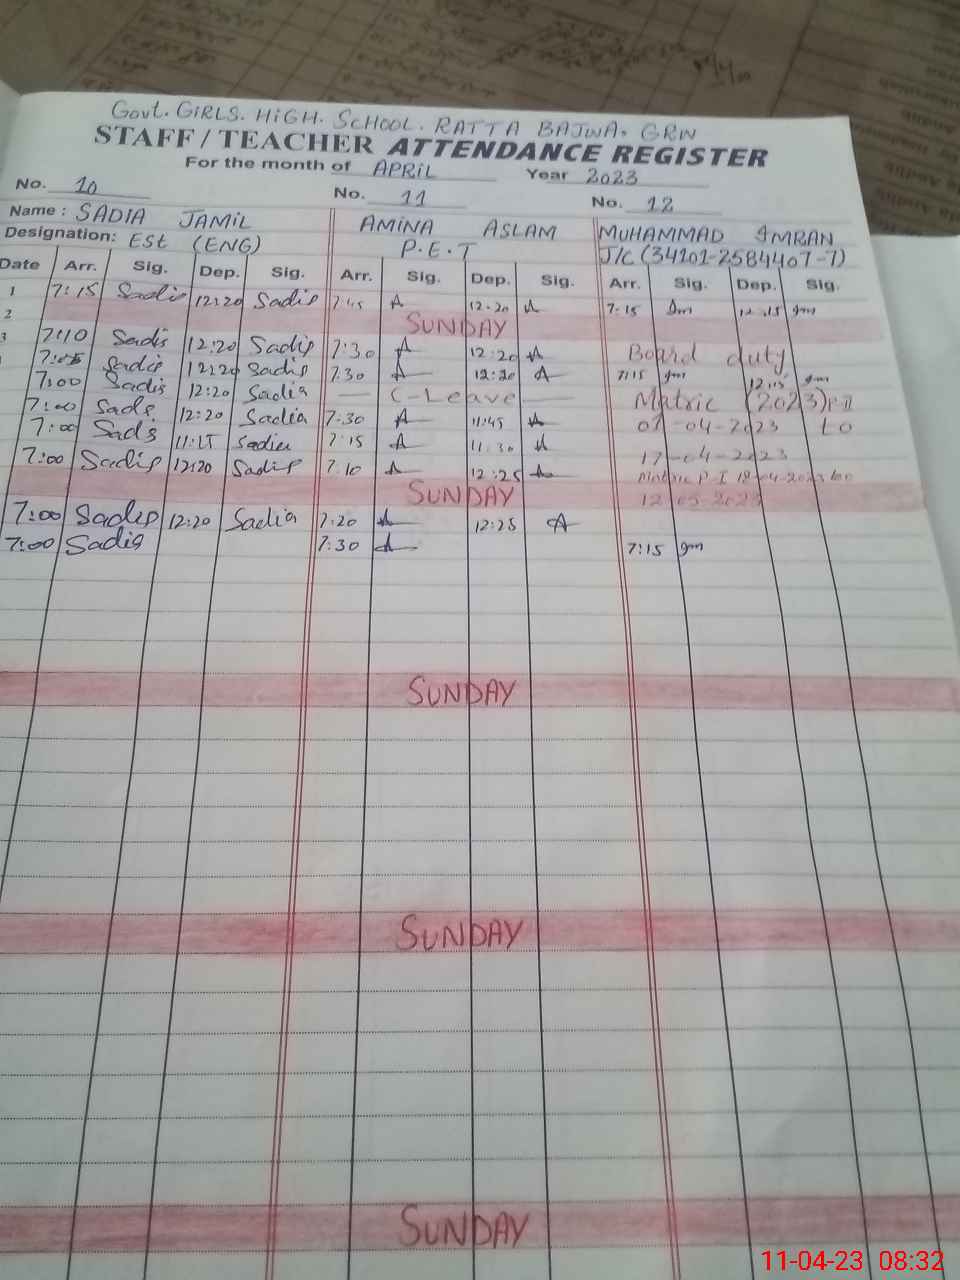 Govt. GIRLS. HIGH. SCHOOL. RATTA BAJWA, GRW
STAFF / TEACHER ATTENDANCE REGISTER
For the month of APRIL Year 2023
No. 10 No. 11 No. 12
Name : SADIA JAMIL AMINA ASLAM MUHAMMAD IMRAN
Designation: ESt (ENG) P.E.T J/C (34101-2584407-7)
Date Arr. Sig. Dep. Sig. Arr. Sig. Dep. Sig. Arr. Sig. Dep. Sig.
1 7:15 Sadis 12:20 Sadis 7:45 A 12:20 A 7:15 12:15
2 SUNDAY
3 7:10 Sadis 12:20 Sadis 7:30 A 12:20 A Board duty
7:05 Sadis 12:20 Sadis 7:30 A 12:20 A 7:15 12:15
7:00 Sadis 12:20 Sadia C-Leave Matric (2023) P II
7:00 Sads 12:20 Sadia 7:30 A 11:45 A 07-04-2023 to
7:00 Sads 11:15 Sadia 7:15 A 11:30 A 17-04-2023
7:00 Sadis 12:20 Sadis 7:10 A 12:25 A Matric P-I 18-04-2023 to
SUNDAY 12-05-2023
7:00 Sadis 12:20 Sadia 7:20 A 12:25 A
7:00 Sadia 7:30 A 7:15
SUNDAY
SUNDAY
SUNDAY
11-04-23 08:32